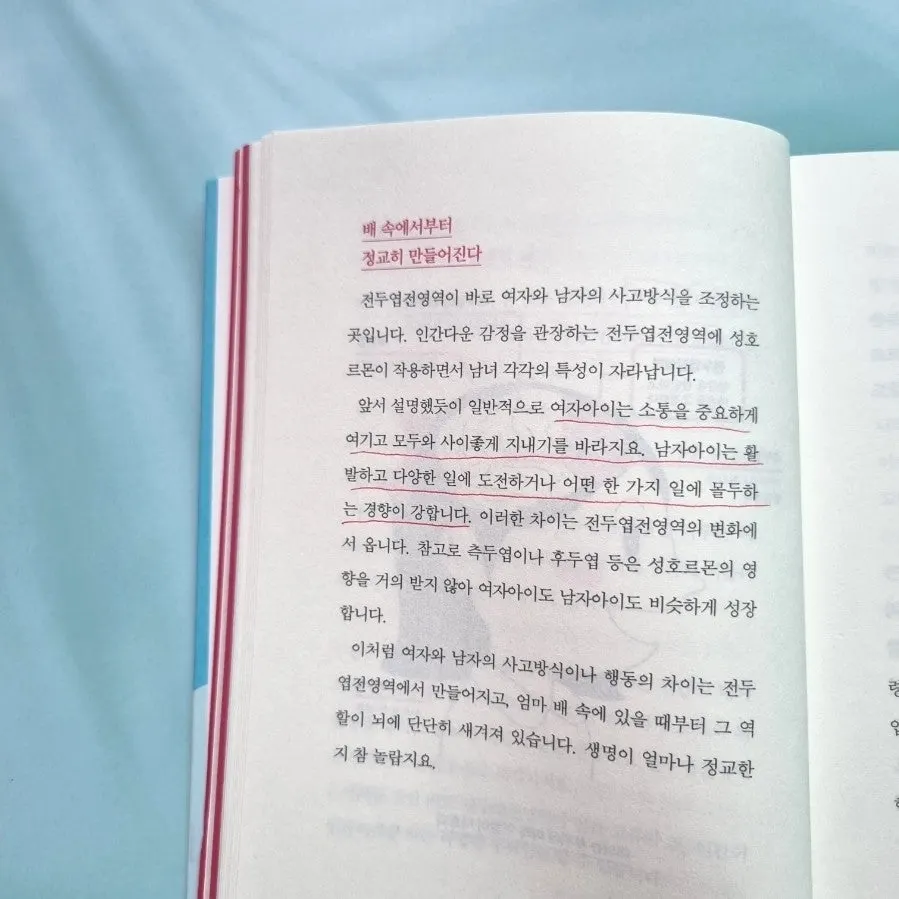 배 속에서부터
정교히 만들어진다
전두엽전영역이 바로 여자와 남자의 사고방식을 조정하는
곳입니다. 인간다운 감정을 관장하는 전두엽전영역에 성호
르몬이 작용하면서 남녀 각각의 특성이 자라납니다.
앞서 설명했듯이 일반적으로 여자아이는 소통을 중요하게
여기고 모두와 사이좋게 지내기를 바라지요. 남자아이는 활
발하고 다양한 일에 도전하거나 어떤 한 가지 일에 몰두하
는 경향이 강합니다. 이러한 차이는 전두엽전영역의 변화에
서 옵니다. 참고로 측두엽이나 후두엽 등은 성호르몬의 영
향을 거의 받지 않아 여자아이도 남자아이도 비슷하게 성장
합니다.
이처럼 여자와 남자의 사고방식이나 행동의 차이는 전두
엽전영역에서 만들어지고, 엄마 배 속에 있을 때부터 그 역
할이 뇌에 단단히 새겨져 있습니다. 생명이 얼마나 정교한
지 참 놀랍지요.